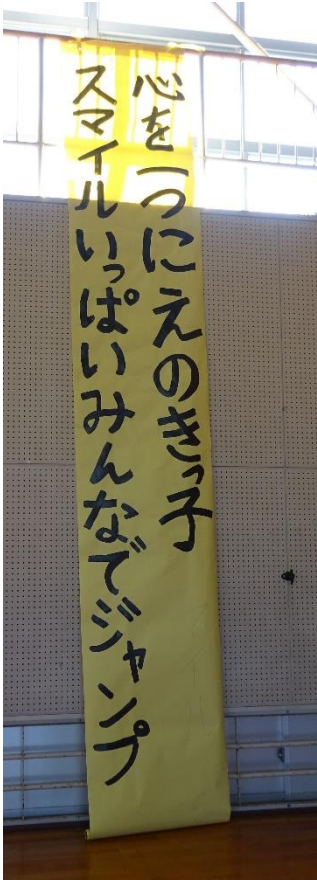 心を一つにえのきっ子
スマイルいっぱいみんなでジャンプ